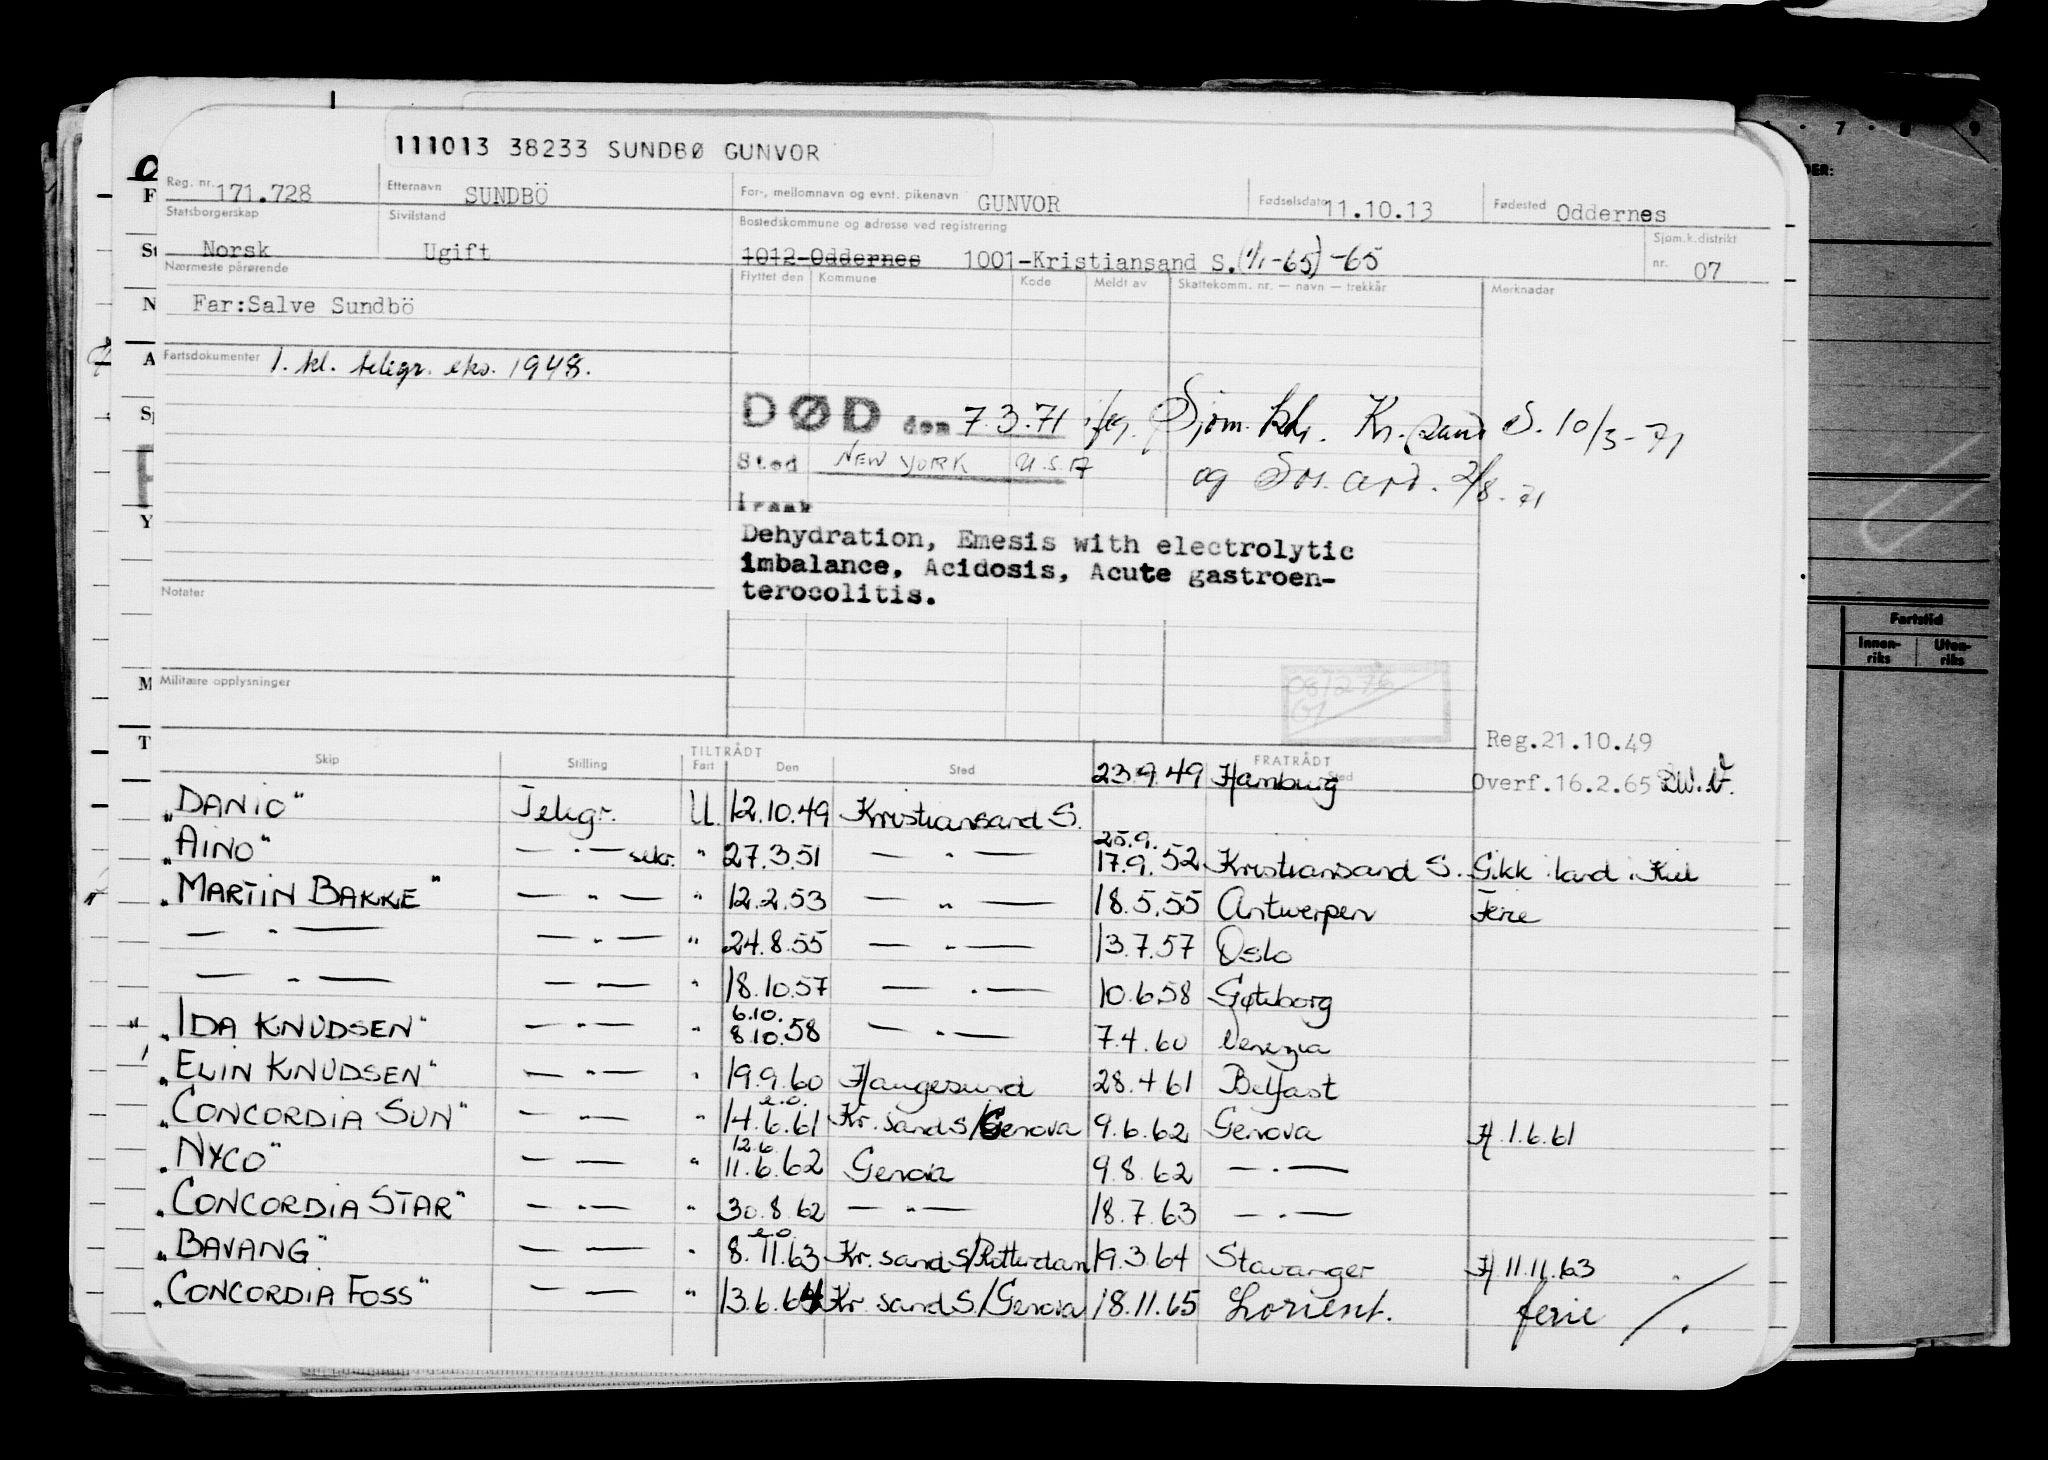 111013 38233 SUNDBØ GUNVOR
Reg. nr. 171.728 Etternavn SUNDBÖ For-, mellomnavn og evnt. pikenavn GUNVOR Fødselsdato 11.10.13 Fødested Oddernes
Statsborgerskap Norsk Sivilstand Ugift Bostedskommune og adresse ved registrering 1012-Oddernes 1001-Kristiansand S. (1/1-65) -65 Sjøm.k.distrikt nr. 07
Nærmeste pårørende Flyttet den Kommune Kode Meldt av Skattekomm. nr. — navn — trekkår Merknader
Far:Salve Sundbö
Fartsdokumenter 1. kl. telegr. eks. 1948.
DØD den 7.3.71 ifg. Sjøm. ktr. Kr.sand S. 10/3-71
Sted NEW YORK U.S.A og avd. 2/8.71
Årsak
Dehydration, Emesis with electrolytic
imbalance, Acidosis, Acute gastroen-
terocolitis.
Notater
Militære opplysninger
081276
01
Reg.21.10.49
Overf.16.2.65
Skip Stilling TILTRÅDT Fart Den Sted FRATRÅDT Sted
"DANIO" Telegr. U. 12.10.49 Kristiansand S. 23.9.49 Hamburg
"AINO" — " — sekr. " 27.3.51 — " — 25.9. 17.9.52 Kristiansand S. Gikk iland i Kiel
"MARTIN BAKKE" — " — " 12.2.53 — " — 18.5.55 Antwerpen Ferie
— " — — " — " 24.8.55 — " — 13.7.57 Oslo
— " — — " — " 18.10.57 — " — 10.6.58 Gøteborg
"IDA KNUDSEN" — " — " 6.10. 8.10.58 — " — 7.4.60 Venezia
"ELIN KNUDSEN" — " — " 19.9.60 Haugesund 28.4.61 Belfast
"CONCORDIA SUN" — " — " e.o. 14.6.61 Kr.sand S/Genova 9.6.62 Genova H 1.6.61
"NYCO" — " — " 12.6. 11.6.62 Genova 9.8.62 — " —
"CONCORDIA STAR" — " — " 30.8.62 — " — 18.7.63 — " —
"BAVANG" — " — " e.o. 8.11.63 Kr.sand S/Rotterdam 19.3.64 Stavanger H 11.11.63
"CONCORDIA FOSS" — " — " 13.6.64 Kr.sand S/Genova 18.11.65 Lorient. ferie
7 8 9
DER:
Fartstid
Innen-riks Uten-riks